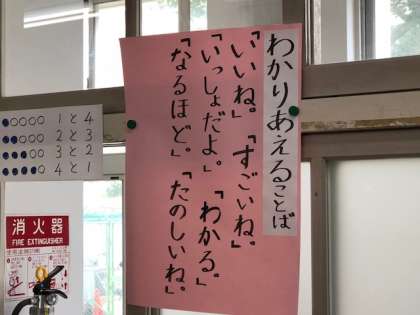 わかりあえることば
「いいね。」「すごいね。」
「いっしょだよ。」「わかる。」
「なるほど。」「たのしいね。」
1と4
2と3
3と2
4と1
消火器
FIRE EXTINGUISHER